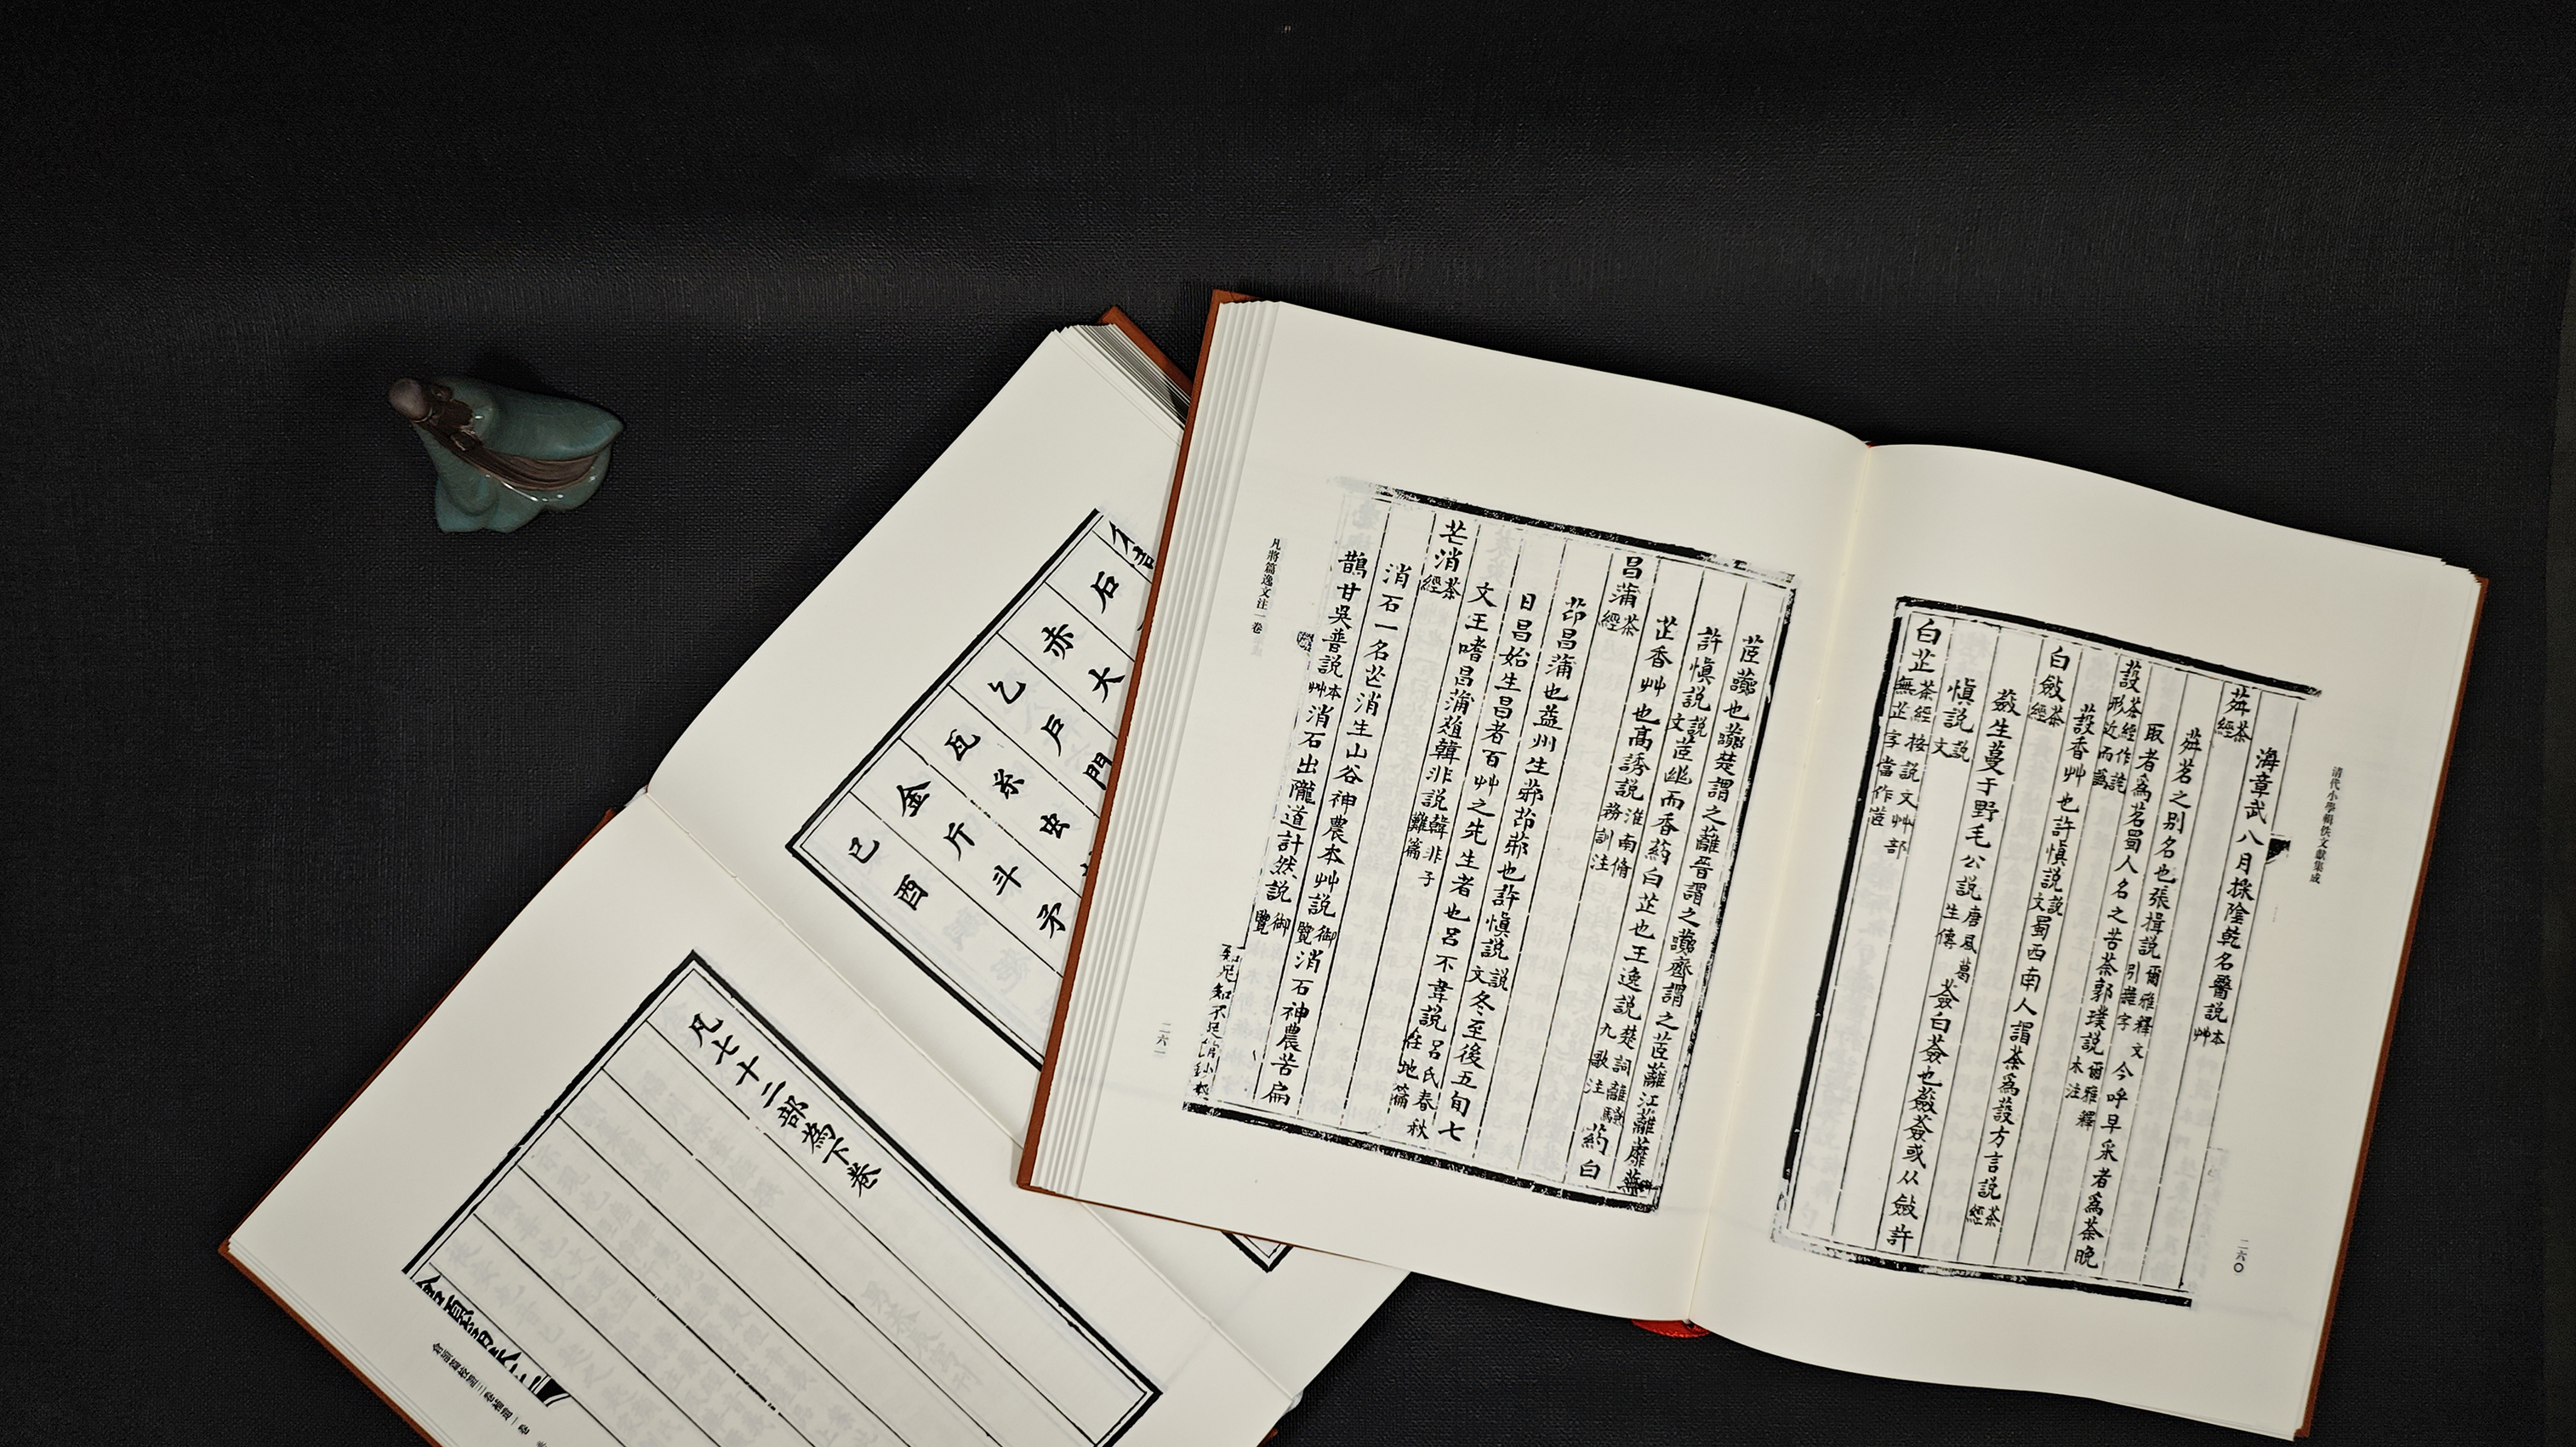 清代小學輯佚文獻集成
二六〇
海章武八月採陰乾名醫説本艸
荈茶經
荈茗之别名也張揖説爾雅釋文引雜字今呼早采者爲茶晚
取者爲茗蜀人名之苦荼郭璞説爾雅釋木注
蔎茶經作詫形近而譌
蔎香艸也許愼説説文蜀西南人謂荼爲蔎方言説茶經
白斂茶經
蘞生蔓于野毛公説唐風葛生傳薟白薟也蘞薟或从斂許
愼説説文
白芷茶經按説文艸部無芷字當作茝
茝虈也虈楚謂之蘺晉謂之虈齊謂之茝蘺江蘺蘼蕪
許愼説説文茝幽而香葯白芷也王逸説楚詞離騷九歌注葯白
芷香艸也高誘説淮南脩務訓注
昌蒲茶經
茚昌蒲也益州生茆茚茆也許愼説説文冬至後五旬七
日昌始生昌者百艸之先生者也呂不韋説呂氏春秋任地篇
文王嗜昌蒲葅韓非説韓非子難篇
芒消茶經
消石一名芒消生山谷神農本艸説御覽消石神農苦扁
鵲甘吳普説本艸消石出隴道計然説御覽
凡將篇逸文注一卷
二六一
石
大
赤
戶
門
乞
糸
虫
瓦
斤
斗
矛
金
酉
己
凡七十二部為下卷